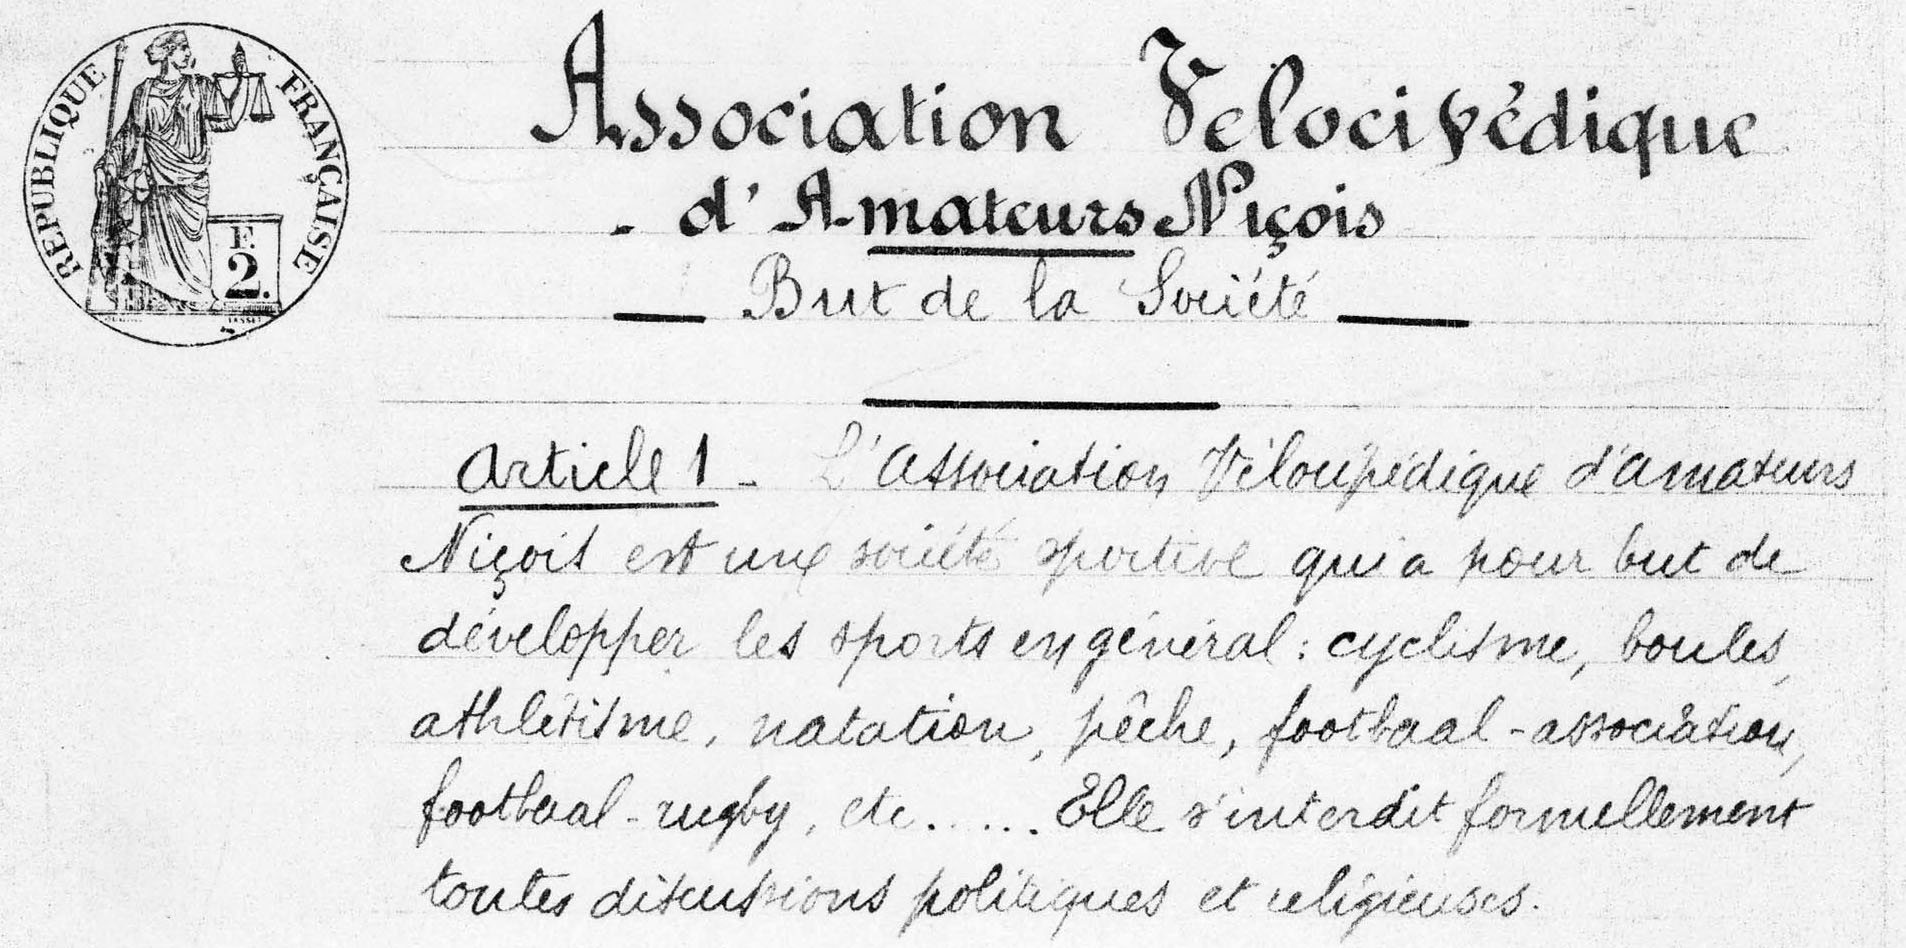 RÉPUBLIQUE FRANÇAISE
F.
2.
Association Velocipédique
- d'Amateurs Niçois
But de la Société
Article 1 - L'Association Vélocipédique d'amateurs
Niçois est une société sportive qui a pour but de
développer les sports en général : cyclisme, boules,
athlétisme, natation, pêche, footbaal-association,
footbaal-rugby, etc..... Elle s'interdit formellement
toutes discussions politiques et religieuses.